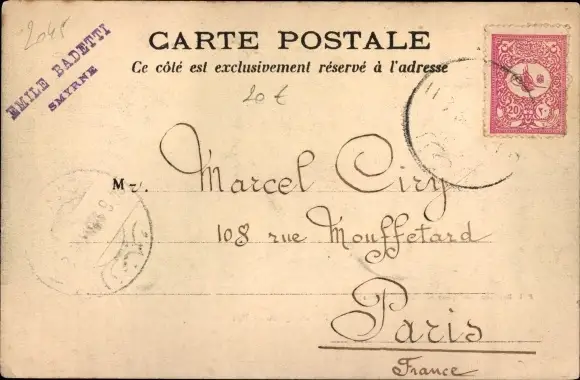 2045
EMILE BADETTI
SMYRNE
CARTE POSTALE
Ce côté est exclusivement réservé à l'adresse
20 €
20
Mr. Marcel Ciry
108 rue Mouffetard
Paris
France